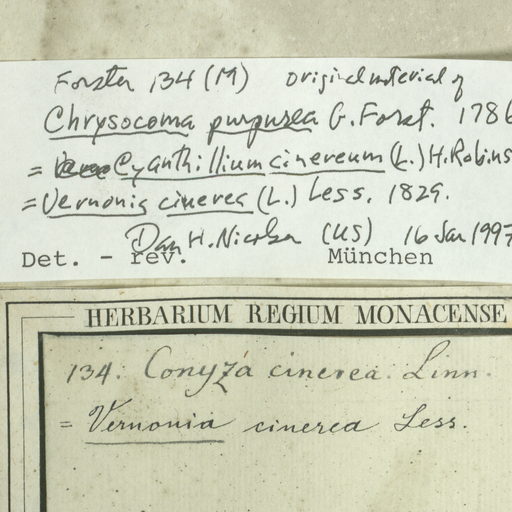 Forster 134 (M) original material of
Chrysocoma purpurea G. Forst. 1786
= Cyanthillium cinereum (L.) H. Robins
= Vernonia cinerea (L.) Less. 1829.
Dan H. Nicolson (US) 16 Jan 1997
Det. - rev. München
HERBARIUM REGIUM MONACENSE
134. Conyza cinerea. Linn.
= Vernonia cinerea Less.